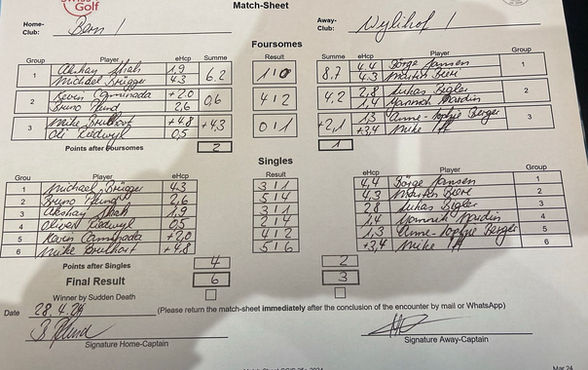 Swiss Golf
Match-Sheet
Home-Club: Bern 1
Away-Club: Wylihof 1
Foursomes
Group Player eHcp Summe Result Summe eHcp Player Group
1 Akshay Shah 1,9 6.2 1 0 8.7 4,4 Börge Jansen 1
Michael Brügger 4.3 4.3
2 Kevin Caminada +2.0 0,6 4 2 4.2 2,8 Lukas Zigler 2
Bruno Pfund 2,6 1,4 Yannick Mardin
3 Mike Brulhart +4,8 +4,3 0 1 +2,1 1,3 Anne-Sophie Berger 3
Oli Radwyl 0,5 +3,4 Mike
Points after foursomes 2 1
Singles
Grou Player eHcp Result eHcp Player Group
1 Michael Brügger 4.3 3 1 4,4 Börge Jansen 1
2 Bruno Pfund 2,6 5 4 4,3 2
3 Akshay Shah 1,9 3 1 2,8 Lukas Zigler 3
4 Oliver Radwyl 0,5 2 4 1,4 Yannick Mardin 4
5 Kevin Caminada +2,0 4 2 1,3 Anne-Sophie Berger 5
6 Mike Brulhart +4,8 5 6 +3,4 Mike 6
Points after Singles 4 2
Final Result 6 3
Winner by Sudden Death
Date 28.4.24 (Please return the match-sheet immediately after the conclusion of the encounter by mail or WhatsApp)
B Pfund
Signature Home-Captain Signature Away-Captain
Mar 24